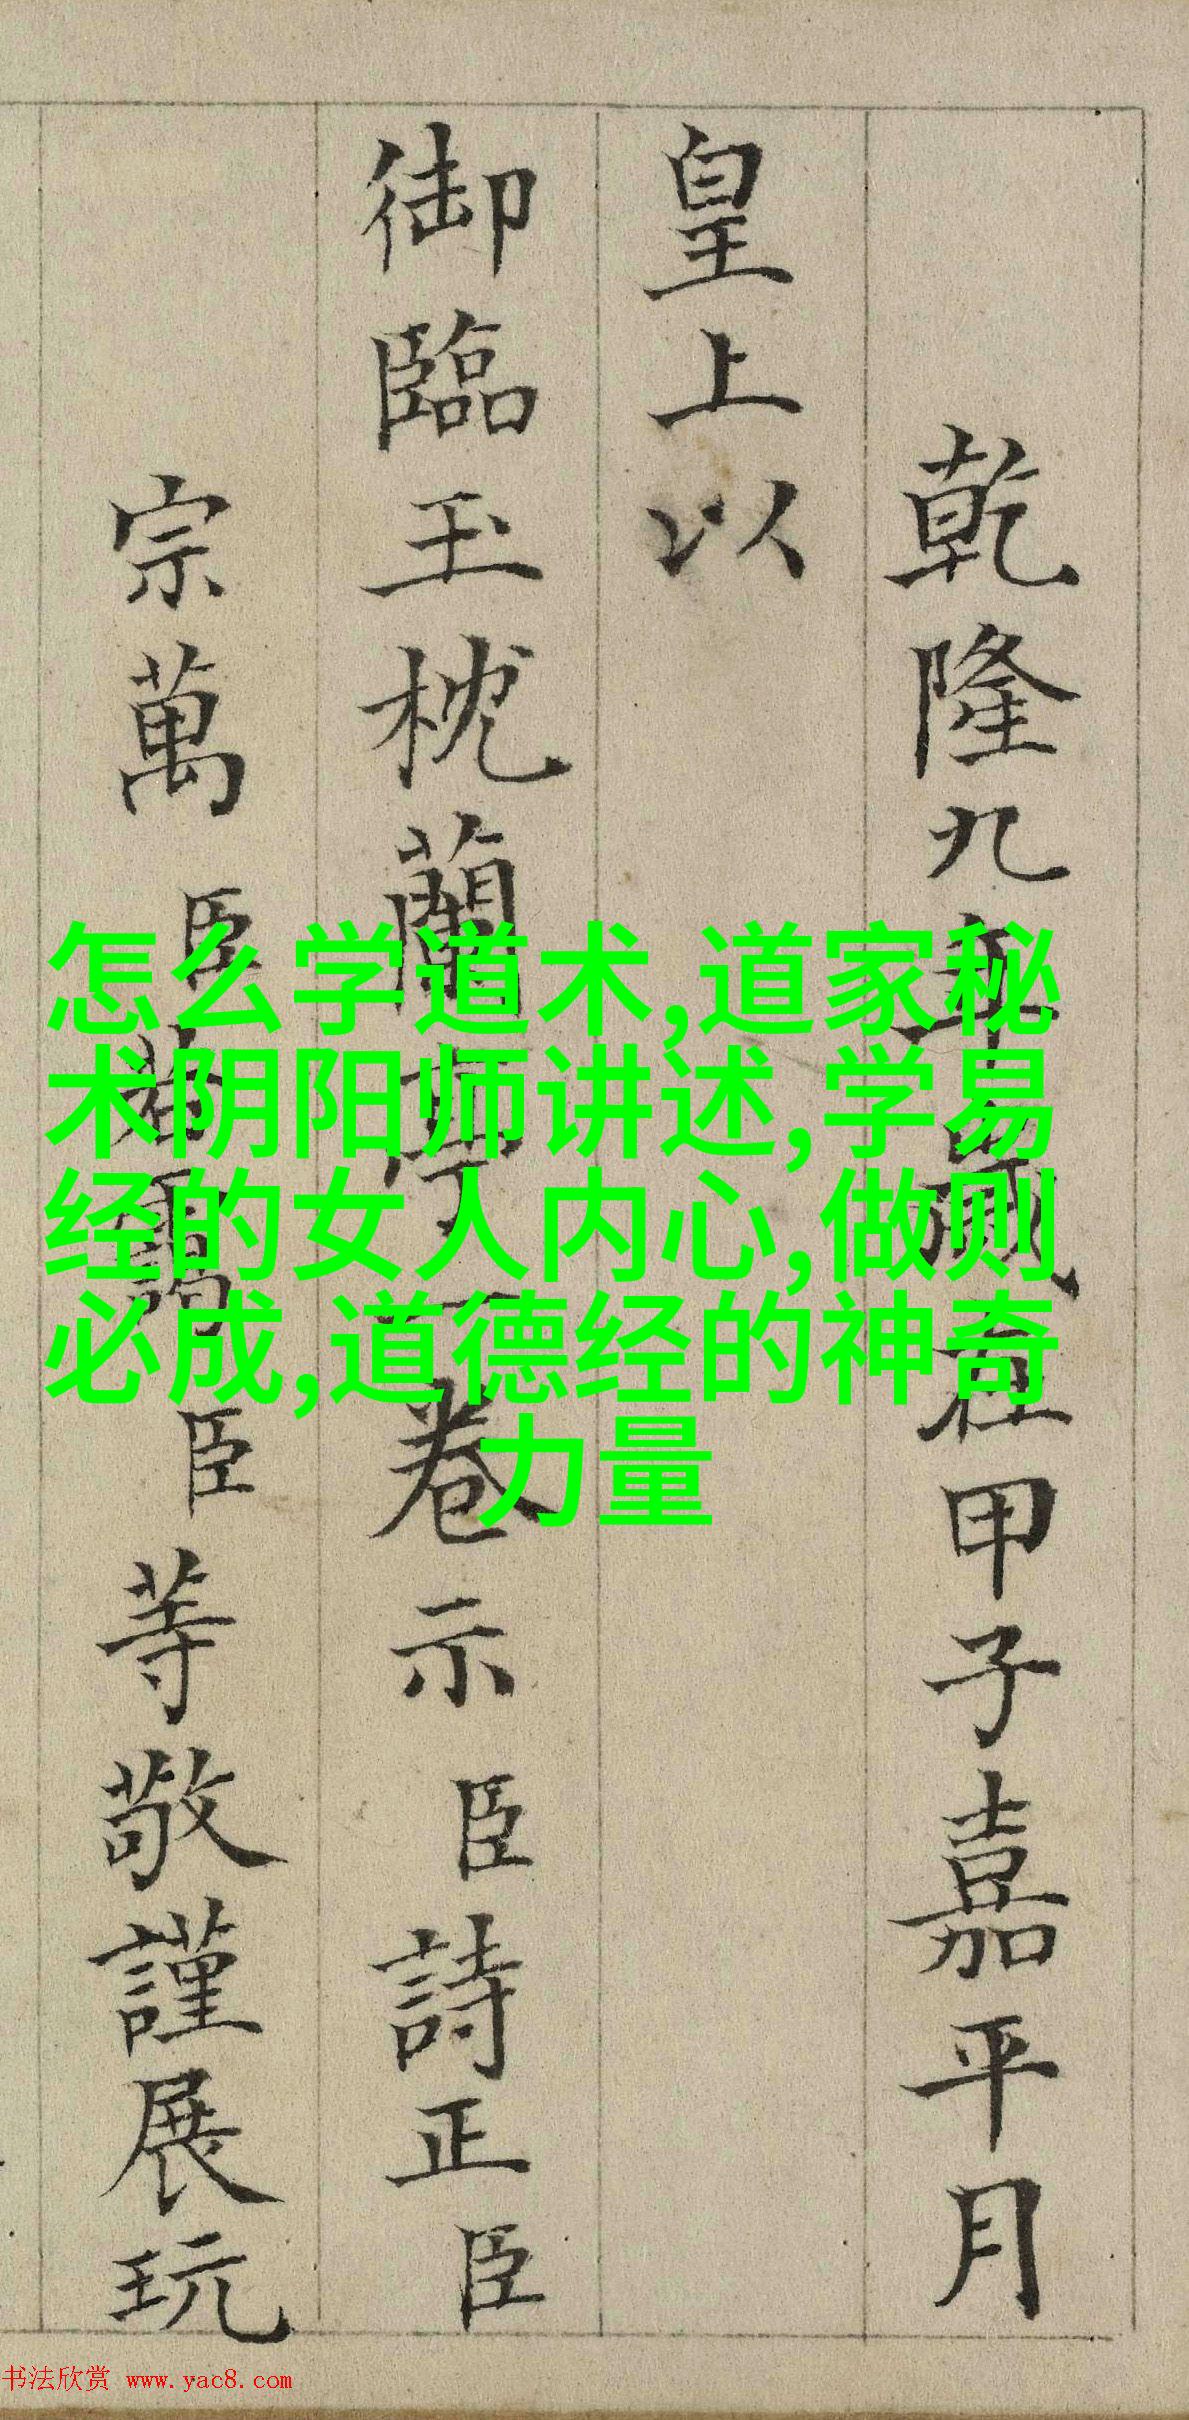 乾隆九年歲在甲子嘉平月
皇上以
御臨玉枕蘭亭一卷示臣詩正臣
宗萬臣若靄臣等敬謹展玩
怎么学道术,道家秘
术阴阳师讲述,学易
经的女人内心,做则
必成,道德经的神奇
力量
书法欣赏 www.yac8.com